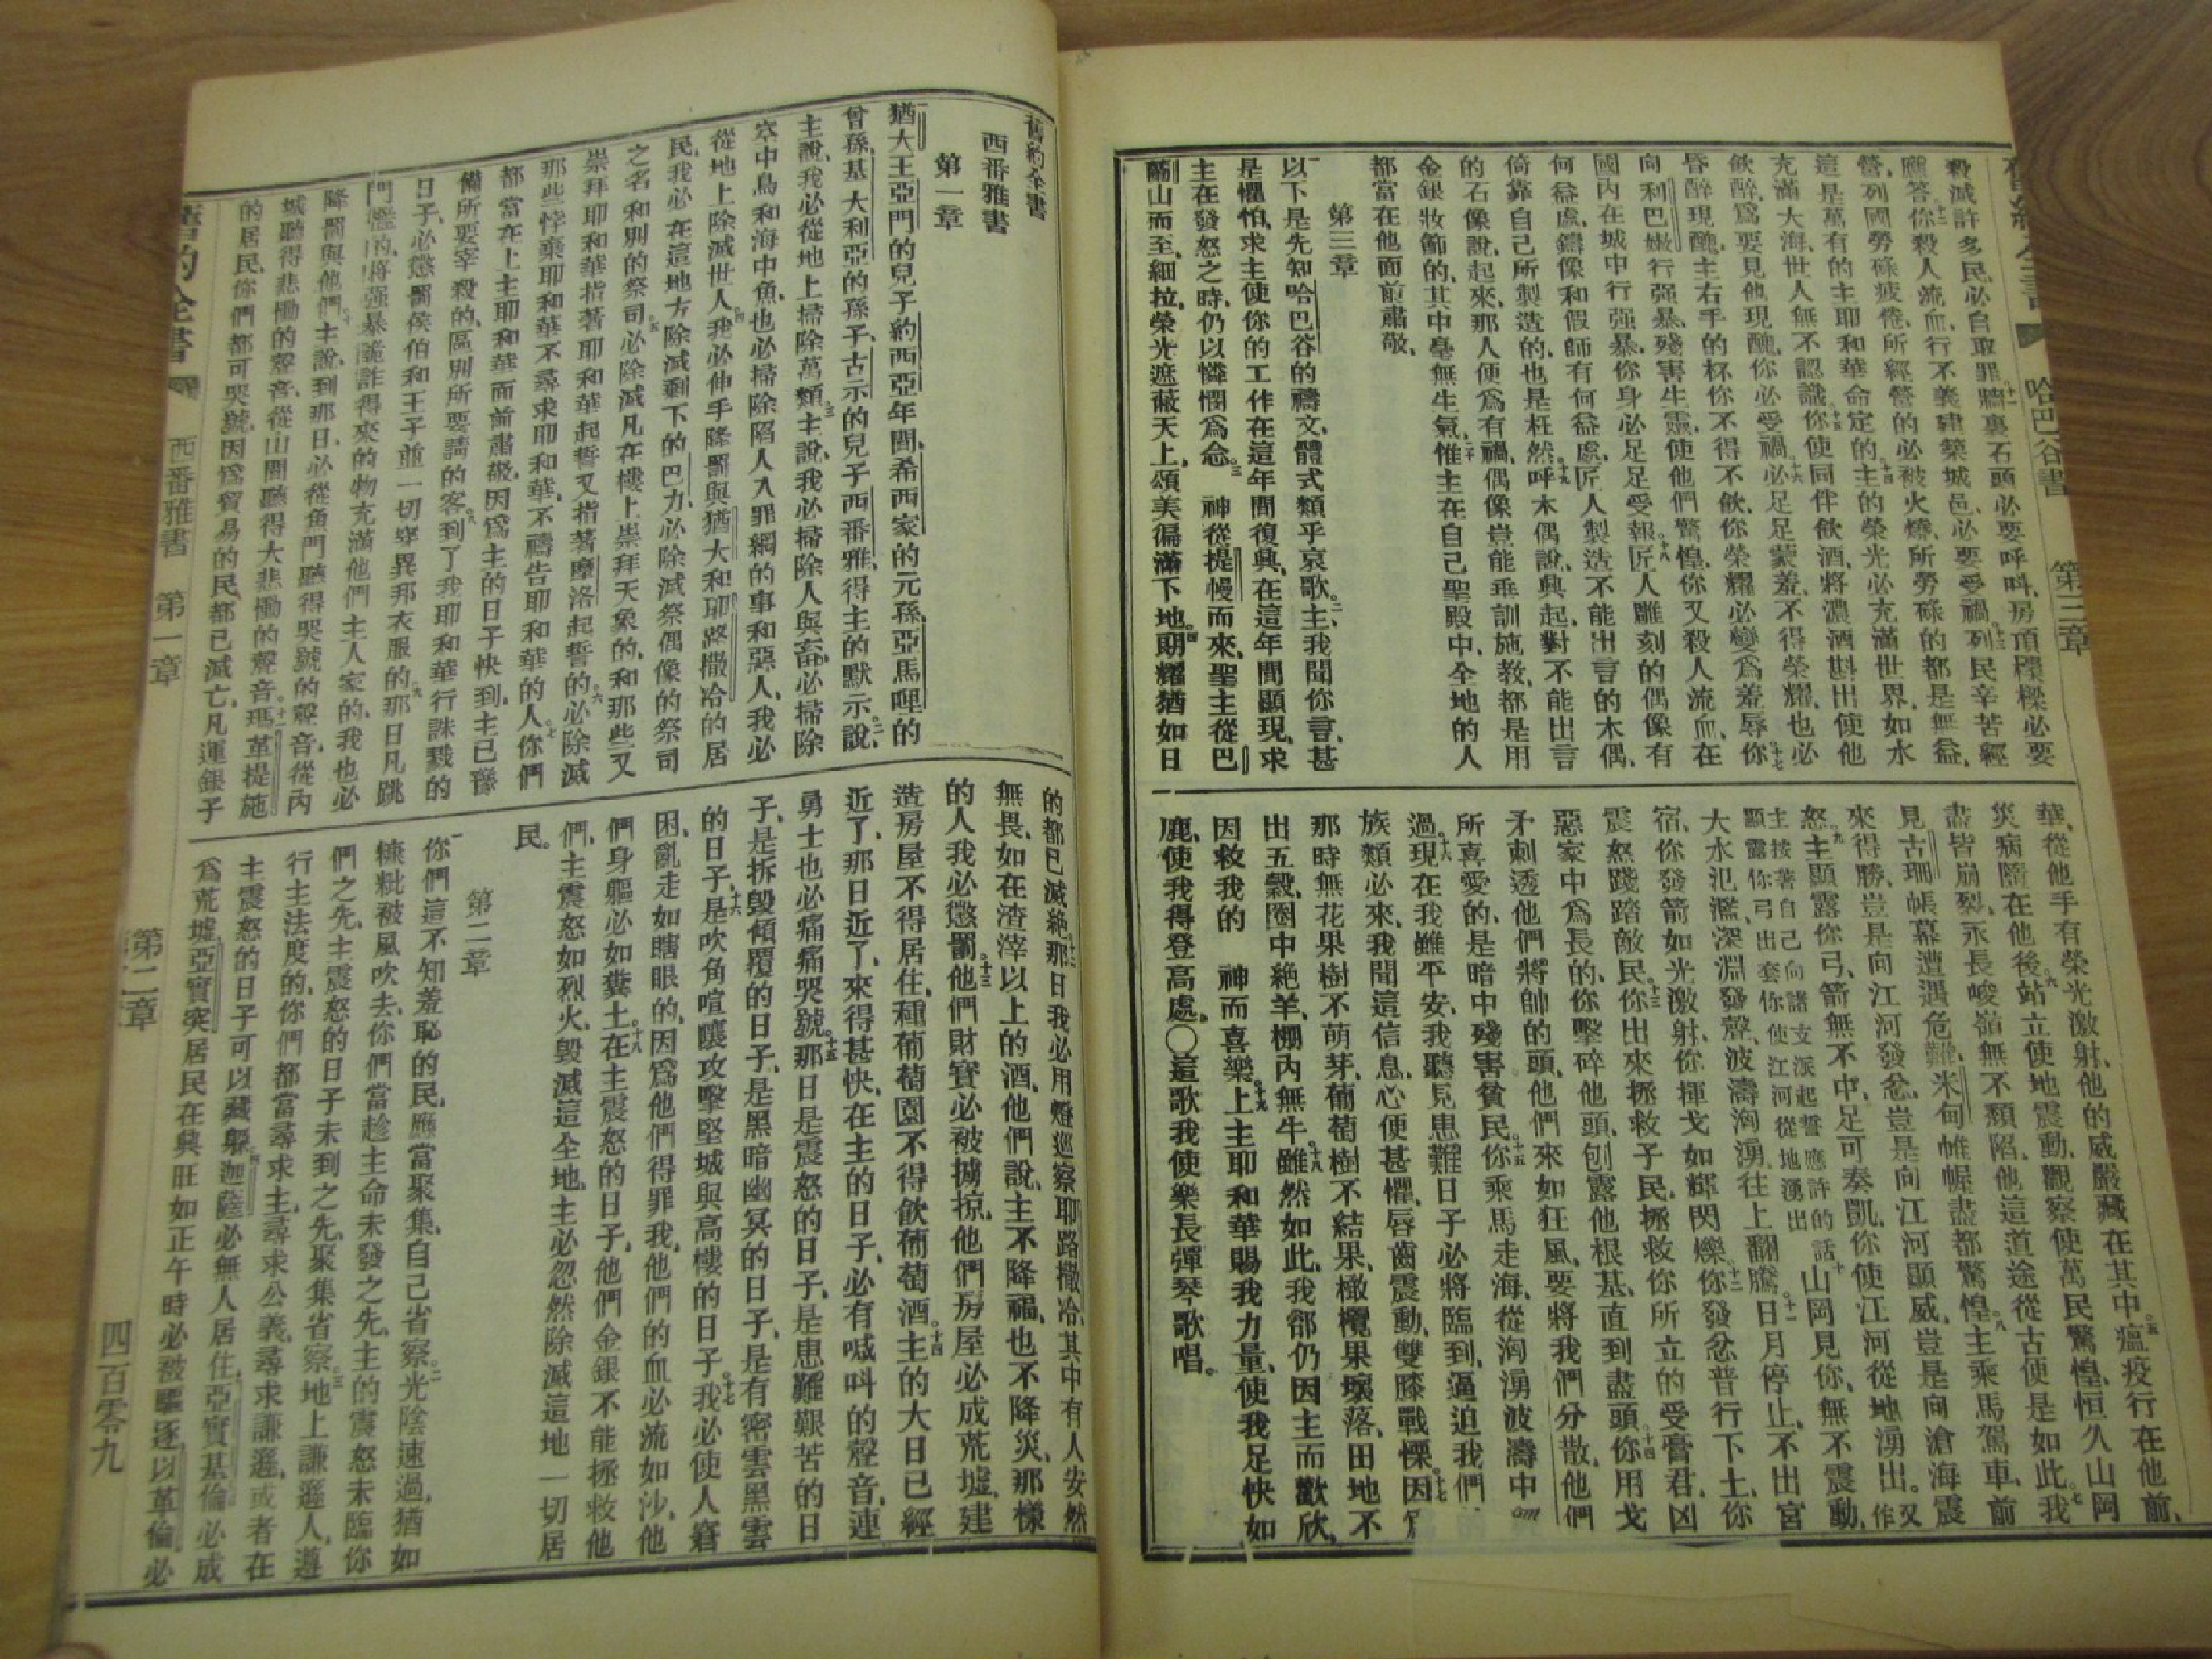 哈巴谷書
第三章
殺滅許多民、必自取罪、牆裏石頭必要呼呌、房頂樑必要
應答、你殺人流血、行不義建築城邑、必要受禍、列民辛苦經
營、列國勞碌疲倦、所經營的必被火燒、所勞碌的都是無益、
這是萬有的主耶和華命定的、主的榮光必充滿世界、如水
充滿大海、世人無不認識、你使同伴飲酒、將濃酒斟出使他
飲醉、爲要見他現醜、你必受禍、必足足蒙羞、不得榮耀、也必
昏醉現醜、主右手的杯你不得不飲、你榮耀必變爲羞辱、你
向利巴嫩行强暴、殘害生靈、使他們驚惶、你又殺人流血、在
國内在城中行强暴、你身必足足受報、匠人雕刻的偶像有
何益處、鑄像和假師有何益處、匠人製造不能出言的木偶、
倚靠自己所製造的、也是枉然、呼木偶說、興起、對不能出言
的石像說、起來、那人便爲有禍、偶像豈能垂訓施教、都是用
金銀妝飾的、其中毫無生氣、惟主在自己聖殿中、全地的人
都當在他面前肅敬、
第三章
以下是先知哈巴谷的禱文、體式類乎哀歌、主、我聞你言、甚
是懼怕、求主使你的工作在這年間復興、在這年間顯現、求
主在發怒之時、仍以憐憫爲念、神從提幔而來、聖主從巴
蘭山而至、細拉、榮光遮蔽天上、頌美徧滿下地、朗耀猶如日
華、從他手有榮光激射、他的威嚴藏在其中、瘟疫行在他前、
災病隨在他後、站立使地震動、觀察使萬民驚惶、恒久山岡
盡皆崩裂、永長峻嶺無不頽陷、他這道途從古便是如此、我
見古珊帳幕遭遇危難、米甸帷幄盡都驚惶、主乘馬駕車、前
來得勝、豈是向江河發忿、豈是向江河顯威、豈是向滄海震
怒、主顯露你弓、箭無不中、足可奏凱、你使江河從地湧出、又作
主按著自己向諸支派起誓應許的話
顯露你弓出套你使江河從地湧出
山岡見你、無不震動、
大水氾濫、深淵發聲、波濤洶湧、往上翻騰、日月停止、不出宮
宿、你發箭如光激射、你揮戈如輝閃爍、你發忿普行下土、你
震怒踐踏敵民、你出來拯救子民、拯救你所立的受膏君、凶
惡家中爲長的、你擊碎他頭、刨露他根基、直到盡頭、你用戈
矛刺透他們將帥的頭、他們來如狂風、要將我們分散、他們
所喜愛的、是暗中殘害貧民、你乘馬走海、從洶湧波濤中
過、現在我雖平安、我聽見患難日子必將臨到、逼迫我們
族類必來、我聞這信息、心便甚懼、唇齒震動、雙膝戰慄、因
那時無花果樹不萌芽、葡萄樹不結果、橄欖果壞落、田地不
出五穀、圈中絕羊、棚內無牛、雖然如此、我卻仍因主而歡欣、
因救我的　神而喜樂、上主耶和華賜我力量、使我足快如
鹿、使我得登高處、〇這歌我使樂長彈琴歌唱。
舊約全書
西番雅書
第一章
猶大王亞門的兒子約西亞年間、希西家的元孫、亞馬哩的
曾孫、基大利亞的孫子、古示的兒子西番雅、得主的默示說、
主說、我必從地上掃除萬類、主說、我必掃除人與畜、必掃除
空中鳥和海中魚、也必掃除陷人入罪網的事和惡人、我必
從地上除滅世人、我必伸手降罰與猶大和耶路撒冷的居
民、我必在這地方除滅剩下的巴力、必除滅祭偶像的祭司
之名和別的祭司、必除滅凡在樓上崇拜天象的、和那些又
崇拜耶和華指著耶和華起誓又指著摩洛起誓的、必除滅
那些悖棄耶和華不尋求耶和華、不禱告耶和華的人、你們
都當在上主耶和華面前肅敬、因爲主的日子快到、主已豫
備所要宰殺的、區別所要請的客、到了我耶和華行誅戮的
日子、必懲罰侯伯和王子並一切穿異邦衣服的、那日凡跳
門檻的、將强暴詭詐得來的物充滿他們主人家的、我也必
降罰與他們、主說、到那日、必從魚門聽得哭號的聲音、從內
城聽得悲慟的聲音、從山間聽得大悲慟的聲音、瑪革提施
的居民、你們都可哭號、因爲貿易的民都已滅亡、凡運銀子
的都已滅絕、那日我必用燈巡察耶路撒冷、其中有人安然
無畏、如在渣滓以上的酒、他們說、主不降福、也不降災、那樣
的人我必懲罰、他們財寶必被擄掠、他們房屋必成荒墟、建
造房屋不得居住、種葡萄園不得飲葡萄酒、主的大日已經
近了、那日近了、來得甚快、在主的日子、必有喊呌的聲音、連
勇士也必痛痛哭號、那日是震怒的日子、是患難艱苦的日
子、是拆毁傾覆的日子、是黑暗幽冥的日子、是有密雲黑雲
的日子、是吹角喧嚷攻擊堅城與高樓的日子、我必使人窘
困、亂走如瞎眼的、因爲他們得罪我、他們的血必流如沙、他
們身軀必如糞土、在主震怒的日子、他們金銀不能拯救他
們、主震怒如烈火、毁滅這全地、主必忽然除滅這地一切居
民。
第二章
你們這不知羞恥的民、應當聚集、自己省察、光陰速過、猶如
糠粃被風吹去、你們當趁主命未發之先、主的震怒未臨你
們之先、主震怒的日子未到之先、聚集省察、地上謙遜人、遵
行主法度的、你們都當尋求主、尋求公義、尋求謙遜、或者在
主震怒的日子可以藏躱、迦薩必無人居住、亞實基倫必成
爲荒墟、亞實突居民在興旺如正午時必被驅逐、以革倫必
舊約全書
西番雅書
第一章
第二章
四百零九